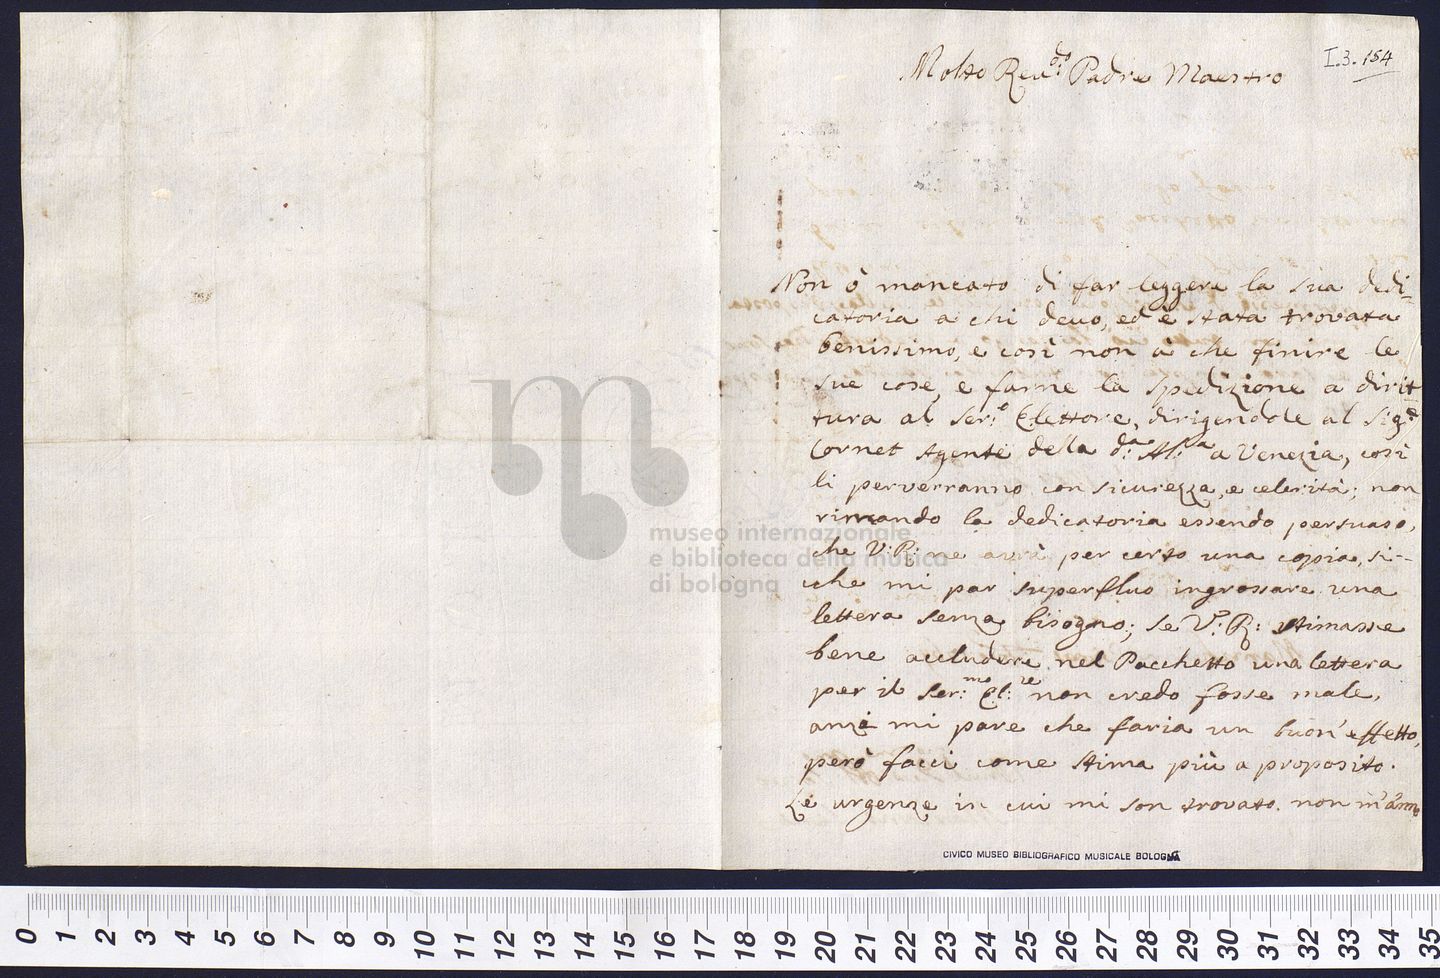 I.3.154
Molto Reu:do Padre Maestro
Non ò mancato di far leggere la sua dedi-
catoria a chi deuo, ed è stata trovata
benissimo, e così non à che finire le
sue cose, e farne la spedizione a dirit-
tura al Ser:o Elettore, dirigendole al Sig:e
Cornet Agente della d:a Al:a a Venezia, così
li perverranno con sicurezza, e celerità; non
rimando la dedicatoria essendo persuaso,
che V:R: ne avrà per certo una copia, si-
che mi par superfluo ingrossare una
lettera senza bisogno; se V:R: stimasse
bene accludere nel Pacchetto una lettera
per il Ser:mo El:re non credo fosse male,
anzi mi pare che faria un buon' effetto,
però facci come stima più a proposito.
Le urgenze in cui mi son trovato non m'ànno
museo internazionale
e biblioteca della musica
di bologna
CIVICO MUSEO BIBLIOGRAFICO MUSICALE BOLOGNA
0 1 2 3 4 5 6 7 8 9 10 11 12 13 14 15 16 17 18 19 20 21 22 23 24 25 26 27 28 29 30 31 32 33 34 35